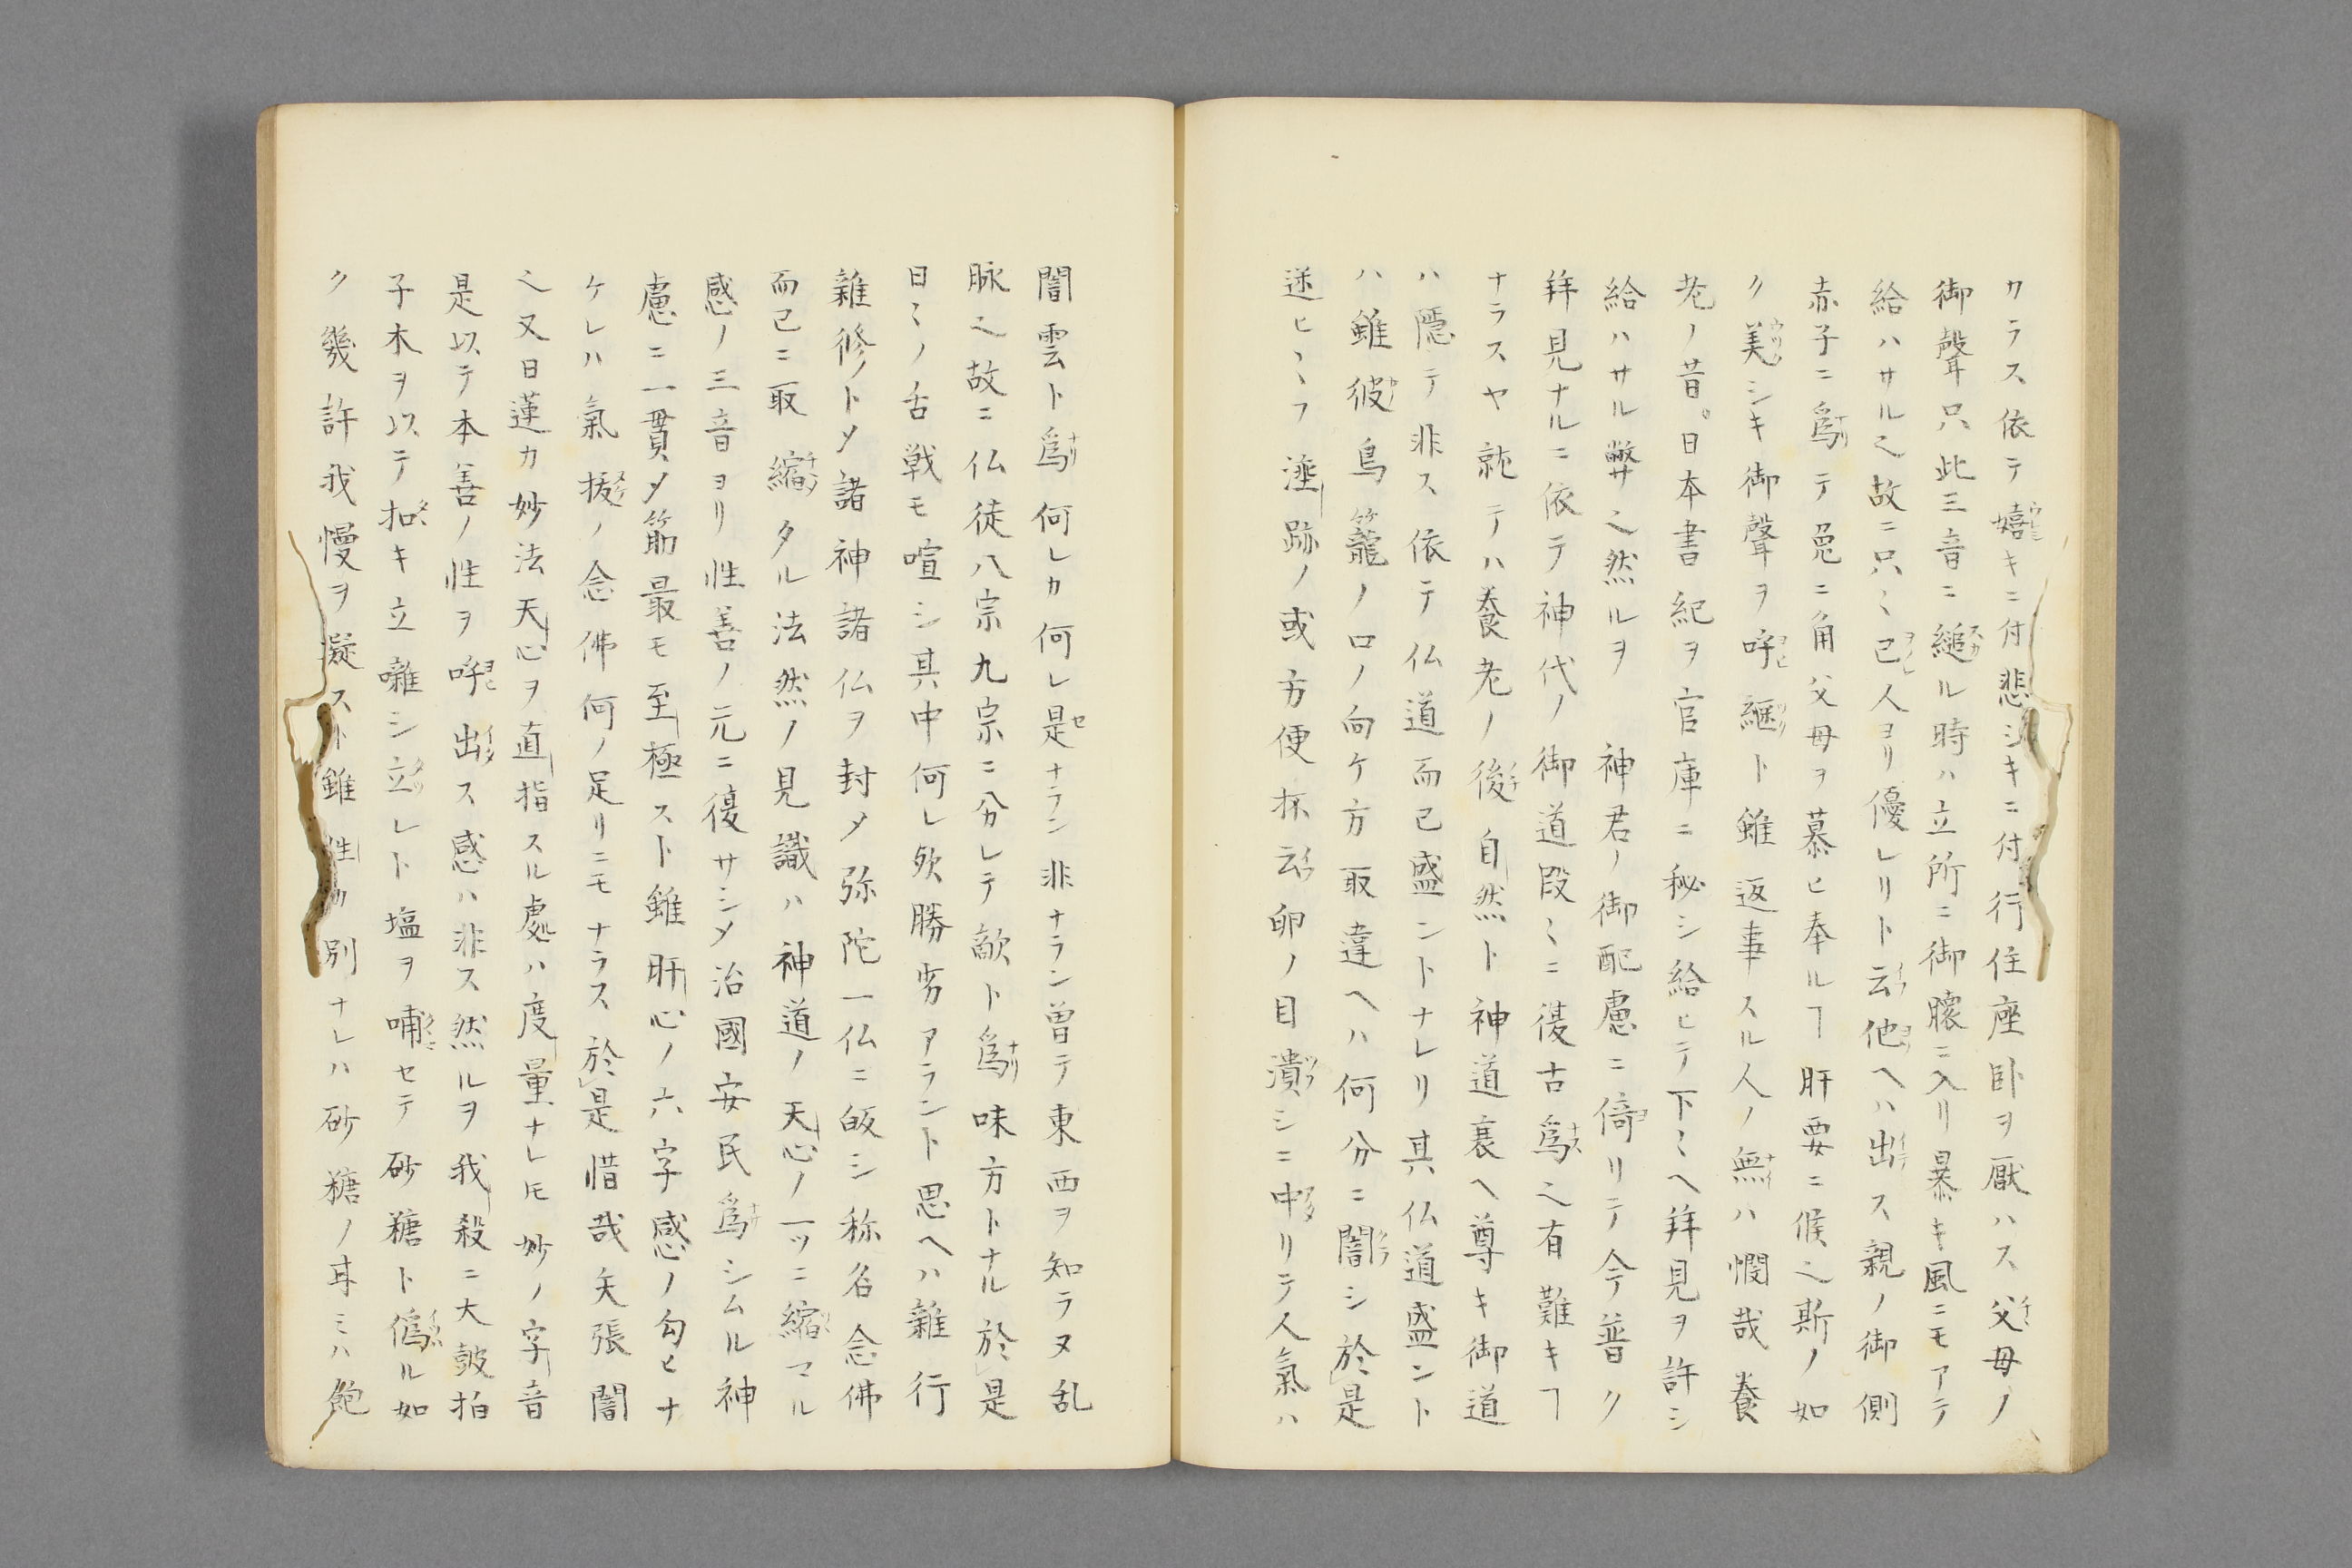 カラス依テ嬉キニ付悲シキニ付行住座卧ヲ厭ハス父母ノ
御聲只此三音ニ縋ル時ハ立所ニ御懷ニ入リ暴キ風ニモアテ
給ハサル之故ニ只〻己人ヨリ優レリト云他ヘハ出ス親ノ御側
赤子ニ爲テ兎ニ角父母ヲ慕ヒ奉ルヿ肝要ニ候之斯ノ如
ク美シキ御聲ヲ呼継ト雖返事スル人ノ無ハ憫哉養
老ノ昔。日本書紀ヲ官庫ニ秘シ給ヒテ下〻ヘ拜見ヲ許シ
給ハサル弊之然ルヲ 神君ノ御配慮ニ倚リテ今普ク
拜見ナルニ依テ神代ノ御道段〻ニ復古爲之有難キヿ
ナラスヤ就テハ養老ノ後自然ト神道衰ヘ尊キ御道
ハ隱テ非ス依テ仏道而已盛ントナレリ其仏道盛ント
ハ雖彼鳥籠ノ口ノ向ケ方取違ヘハ何分ニ闇シ於是
迷ヒ〻フ埀跡ノ或方便杯云卵ノ目潰シニ中リテ人氣ハ
闇雲ト爲何レカ何レ是ナラン非ナラン曽テ東西ヲ知ラヌ乱
脉之故ニ仏徒八宗九宗ニ分レテ敵ト爲味方トナル於是
日〻ノ舌戦モ喧シ其中何レ欤勝劣アラント思ヘハ雜行
雜修ノトメ諸神諸仏ヲ封メ弥陀一仏ニ皈シ称名念佛
而已ニ取縮タル法然ノ見識ハ神道ノ天心ノ一ツニ縮マル
感ノ三音ヨリ性善ノ元ニ復サシメ治國安民爲シムル神
慮ニ一貫メ筋最モ至極スト雖肝心ノ六字感ノ勾ヒナ
ケレハ氣拔ノ念佛何ノ足リニモナラス於是惜哉矢張闇
之又日蓮カ妙法天心ヲ直指スル處ハ度量ナレ𪜈妙ノ字音
是以テ本善ノ性ヲ呼出ス感ハ非ス然ルヲ我殺ニ大皷拍
子木ヲ以テ扣キ立囃シ立レト塩ヲ哺セテ砂糖ト僞ル如
ク幾許我慢ヲ凝スト雖性カ別ナレハ砂糖ノ耳ミハ飽